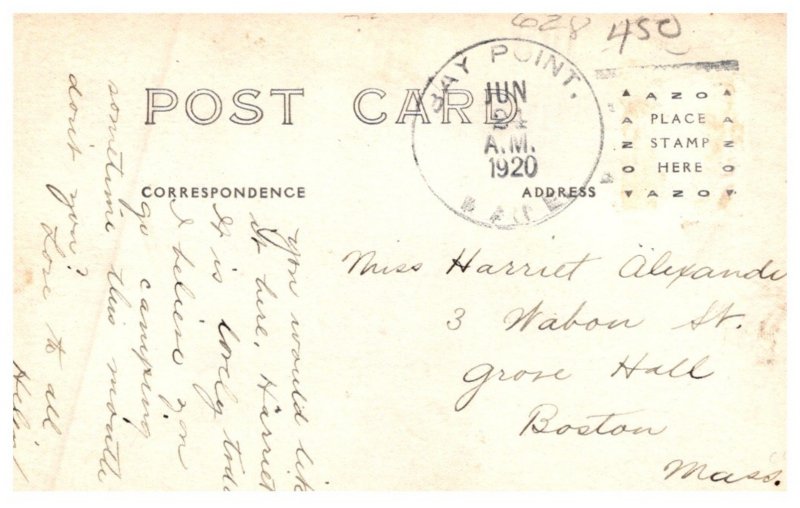 628 450
BAY POINT,
JUN
21
A.M.
1920
MAINE
POST CARD
CORRESPONDENCE
ADDRESS
AZO
PLACE
STAMP
HERE
AZO
AZO
AZO
Miss Harriet Alexande
3 Wabon St.
Grove Hall
Boston
Mass.
you would like
it here, Harriet
It is lovely toda
I believe you
go camping
sometime this month
don't you?
Love to all